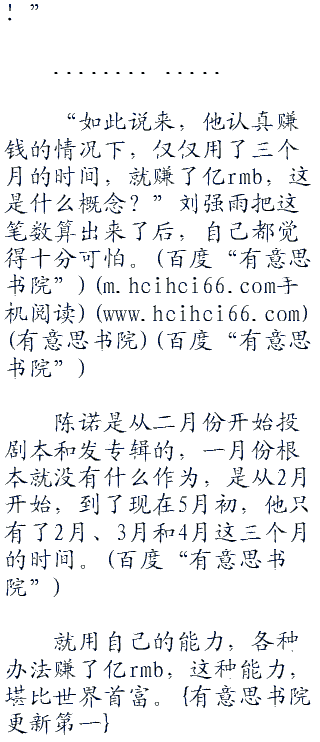 ！”
........ .....
“如此说来，他认真赚
钱的情况下，仅仅用了三个
月的时间，就赚了亿rmb，这
是什么概念？”刘强雨把这
笔数算出来了后，自己都觉
得十分可怕。(百度“有意思
书院”)(m.hcihci66.com手
机阅读)(www.hcihci66.com)
(有意思书院)(百度“有意思
书院”)
陈诺是从二月份开始投
剧本和发专辑的，一月份根
本就没有什么作为，是从2月
开始，到了现在5月初，他只
有了2月、3月和4月这三个月
的时间。(百度“有意思书
院”)
就用自己的能力，各种
办法赚了亿rmb，这种能力，
堪比世界首富。{有意思书院
更新第一}